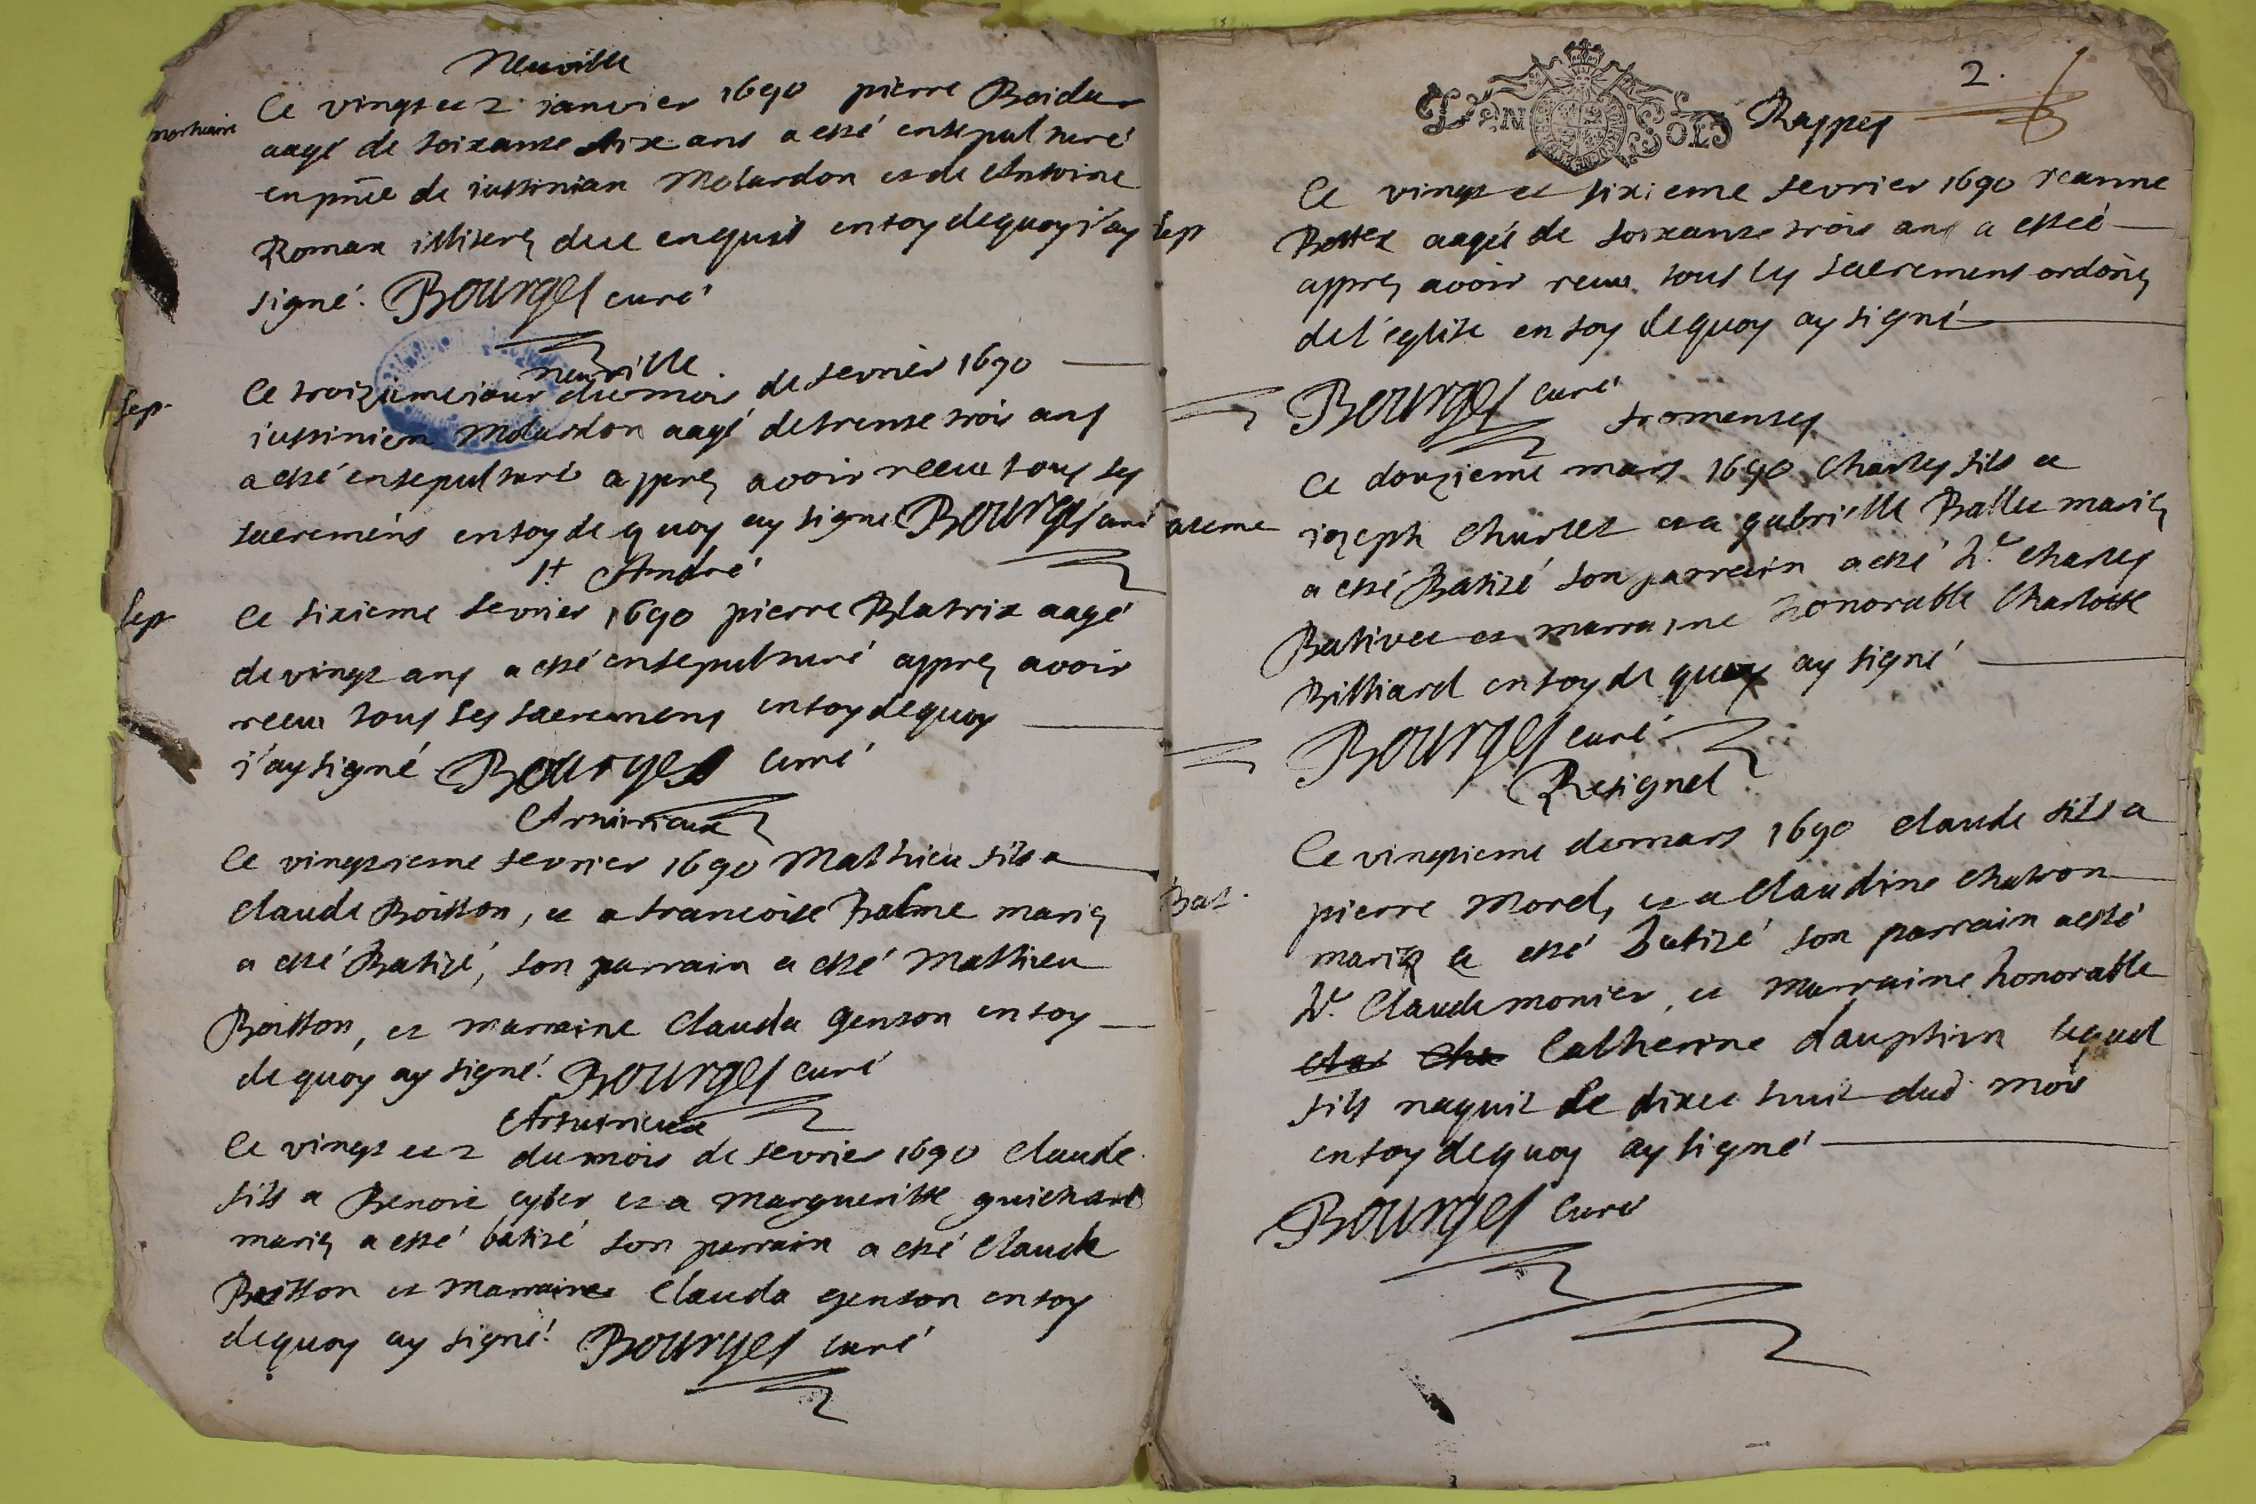 Neuville
mortuaire
Ce vingt et 2 ianvier 1690 pierre Boidu
aagé de soixante dix ans a esté ensepulturé
en pñce de iustinian Molardon et de Antoine
Roman illiterez deue enquis en foy dequoy i'ay
signé. Bourges curé
neuville
Sep.
Ce troizieme iour du mois de fevrier 1690
iustinien Molardon aagé de trente trois ans
a esté ensepulturé apprez avoir receu tous ses
sacremens en foy de quoy ay signé Bourges curé
St André
Sep
Ce sixieme fevrier 1690 pierre Blatrix aagé
de vingt ans a esté ensepulturé apprez avoir
receu tous ses sacremens en foy dequoy
i'ay signé Bourges curé
Ce vingtieme fevrier 1690 Mathieu fils a
Claude Boisson, et a francoise Balme mariez
a esté Batizé, son parrain a esté Mathieu
Boisson, et marraine Clauda genson en foy
de quoy ay signé. Bourges curé
Ce vingt et 2 du mois de fevrier 1690 Claude
fils a Benoit cyber et a Margueritte guichard
mariez a esté batizé son parrain a esté Claude
Boisson et Marraine Clauda genson en foy
de quoy ay signé. Bourges curé
2.
DEN SOLS
Rappes
Sep
Ce vingt et sixieme fevrier 1690 ieanne
Bottex aagée de soixante trois ans a esteé
apprez avoir receu tous les sacremens ordoñez
de l'eglise en foy dequoy ay signé
Bourges curé
fromentes
Ce douzieme mars 1690 Charles fils a
iozeph Charlet et a gabrielle Ballee mariez
a esté Batizé son parrain a esté hr. Charles
et marraine honorable Charlotte
Billiard en foy de quoy ay signé
Bourges curé
Resignel
Bat.
Ce vingtieme de mars 1690 Claude fils a
pierre Morel, et a Claudine Chatron
mariez a esté batizé son parrain a esté
hr. Claude monier, et Marraine honorable
Catherine dauphin lequel
fils naquit le dixet huit dud mois
en foy de quoy ay signé
Bourges curé